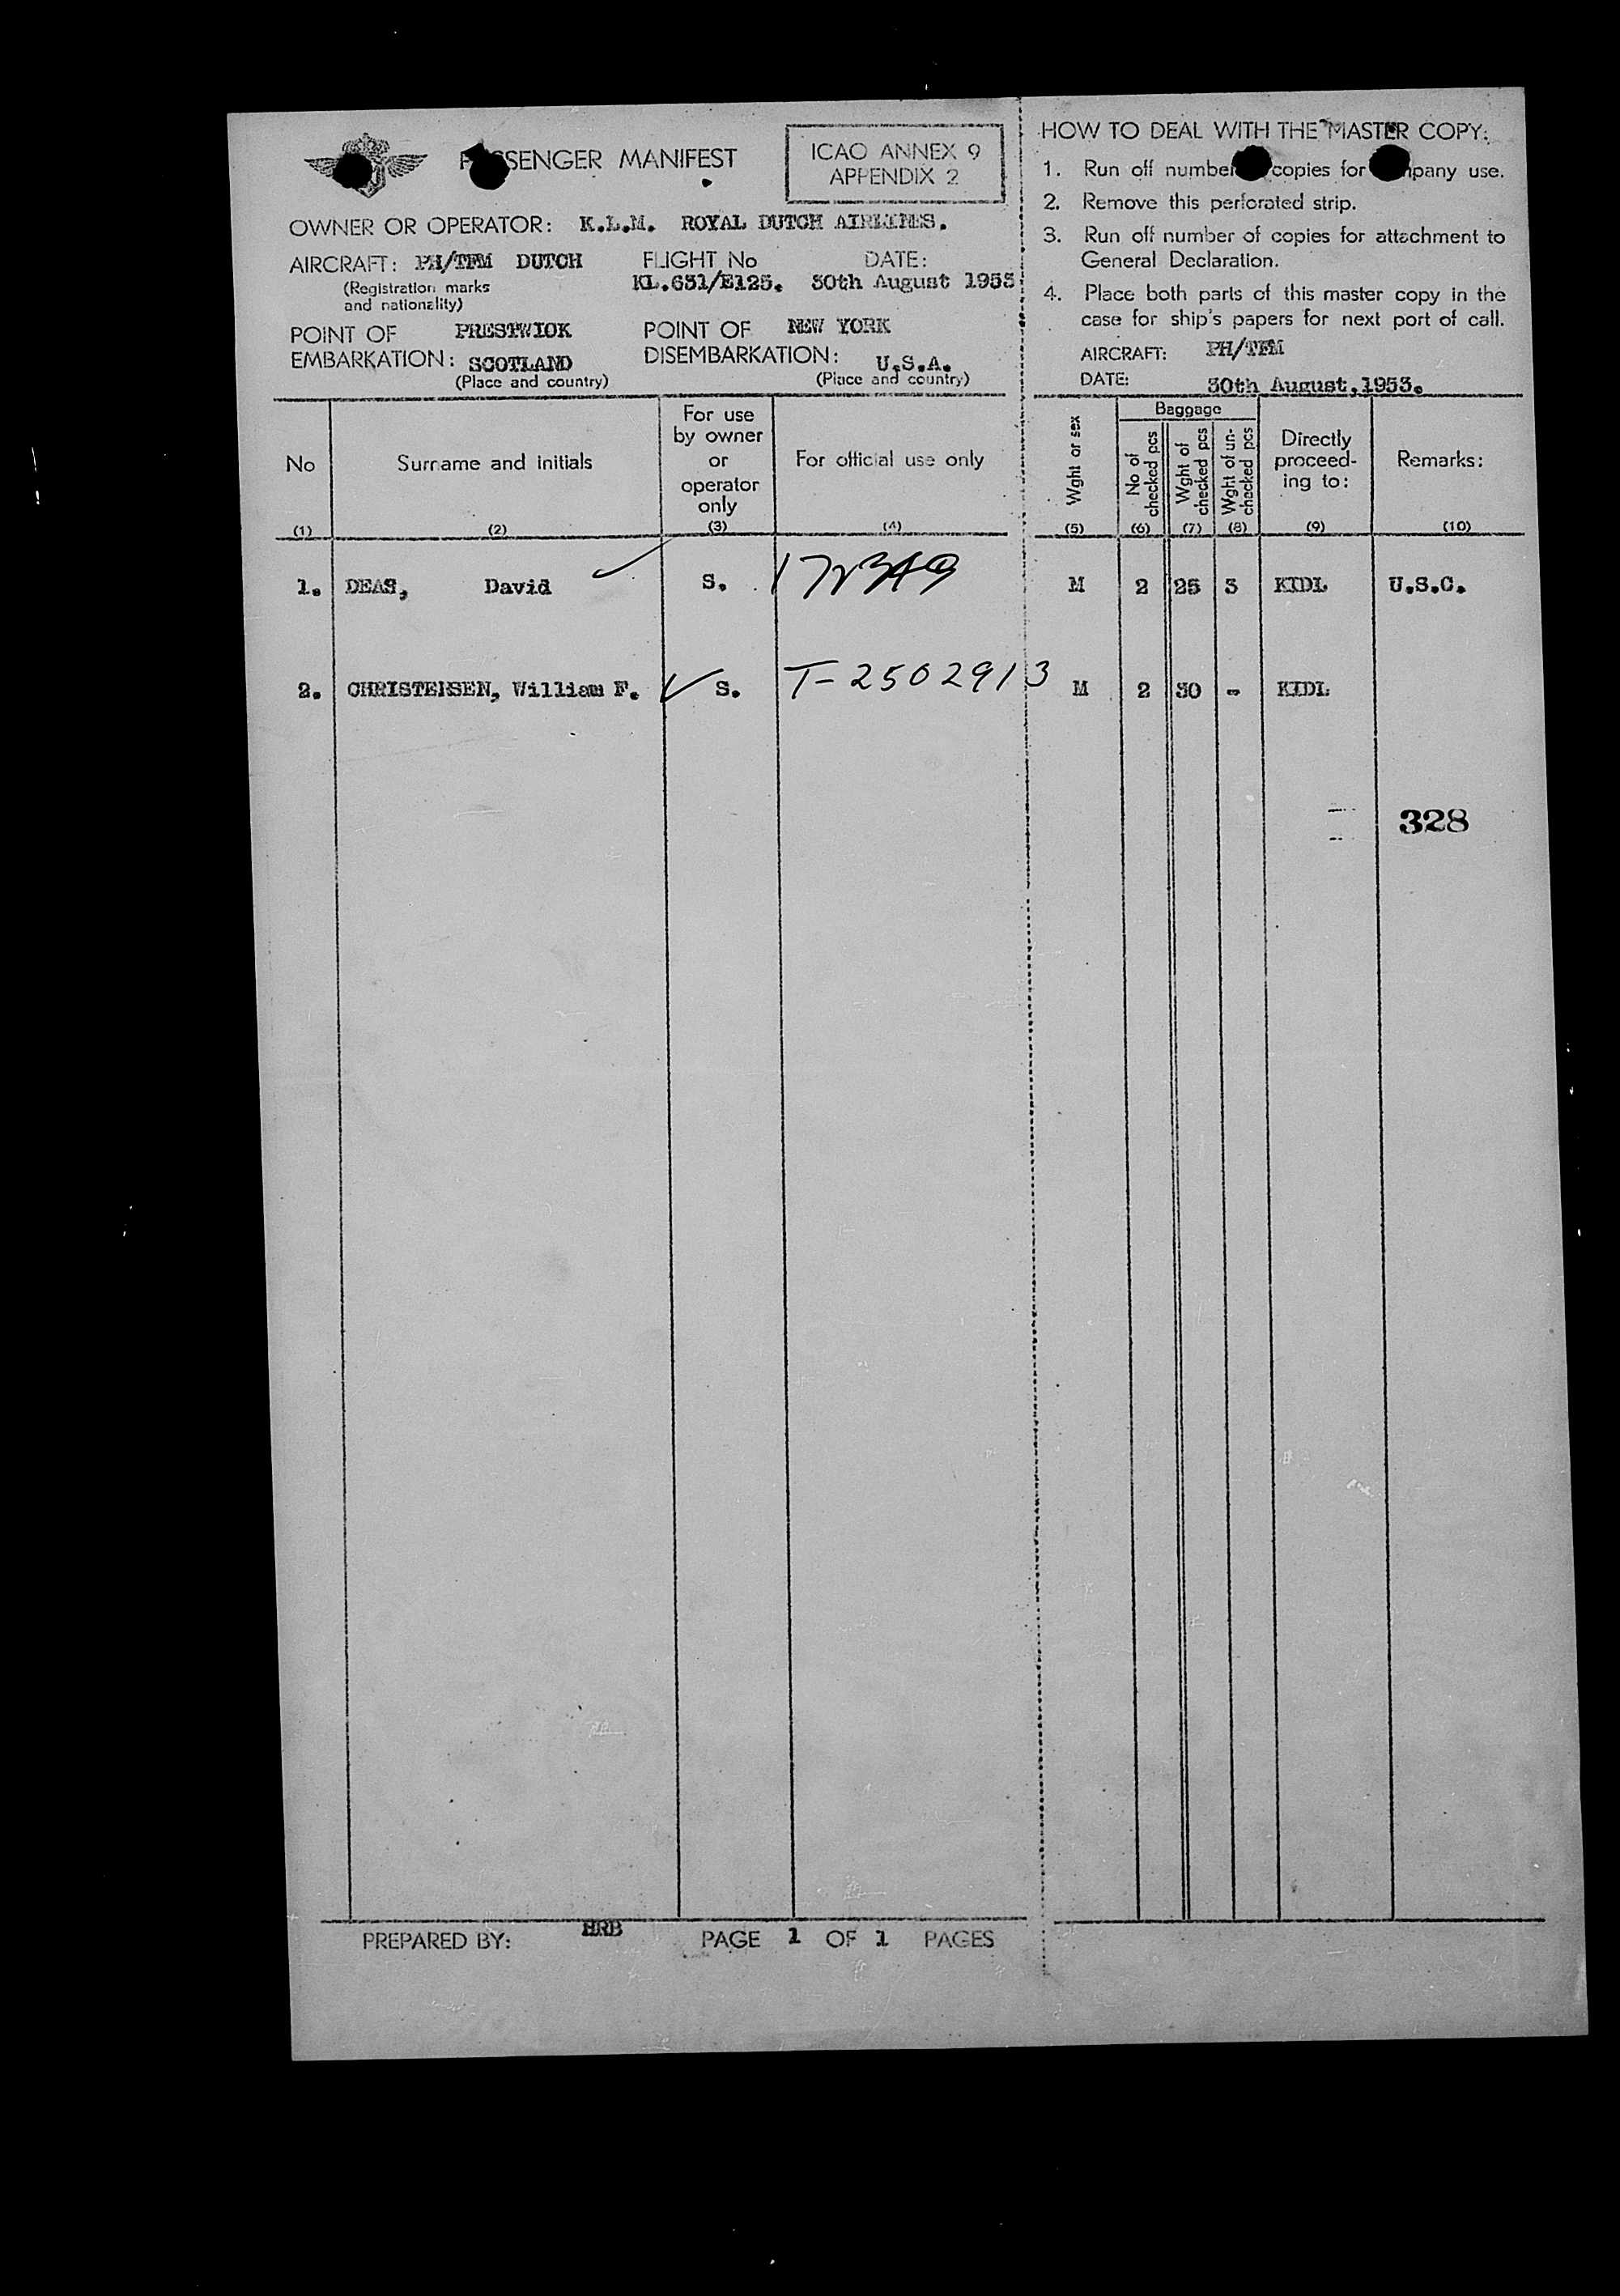 PASSENGER MANIFEST
ICAO ANNEX 9
APPENDIX 2
OWNER OR OPERATOR: K.L.M. ROYAL DUTCH AIRLINES.
AIRCRAFT: PH/TFM DUTCH
(Registration marks
and nationality)
FLIGHT No
KL.631/E125.
DATE:
30th August 1953
POINT OF
EMBARKATION:
PRESTWICK
SCOTLAND
(Place and country)
POINT OF
DISEMBARKATION:
NEW YORK
U.S.A.
(Place and country)
HOW TO DEAL WITH THE MASTER COPY:
1. Run off number copies for company use.
2. Remove this perforated strip.
3. Run off number of copies for attachment to
General Declaration.
4. Place both parts of this master copy in the
case for ship's papers for next port of call.
AIRCRAFT: PH/TFM
DATE: 30th August,1953.
No
(1)
Surname and initials
(2)
For use
by owner
or
operator
only
(3)
For official use only
(4)
Wght or sex
(5)
Baggage
No of
checked pcs
(6)
Wght of
checked pcs
(7)
Wght of un-
checked pcs
(8)
Directly
proceed-
ing to:
(9)
Remarks:
(10)
1. DEAS, David S. M 2 25 3 KIDL U.S.C.
2. CHRISTENSEN, William F. S. T-2502913 M 2 30 - KIDL
328
PREPARED BY: HRB PAGE 1 OF 1 PAGES